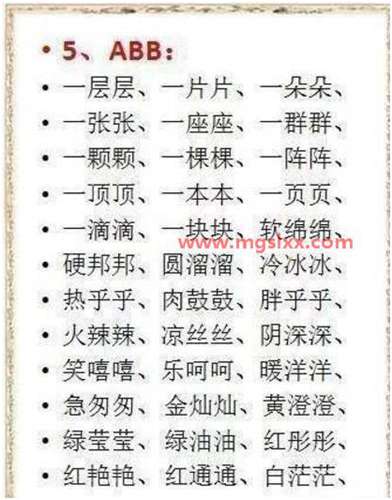 • 5、ABB：
• 一层层、一片片、一朵朵、
• 一张张、一座座、一群群、
• 一颗颗、一棵棵、一阵阵、
• 一顶顶、一本本、一页页、
• 一滴滴、一块块、软绵绵、
www.mgsixx.com
• 硬邦邦、圆溜溜、冷冰冰、
• 热乎乎、肉鼓鼓、胖乎乎、
• 火辣辣、凉丝丝、阴深深、
• 笑嘻嘻、乐呵呵、暖洋洋、
• 急匆匆、金灿灿、黄澄澄、
• 绿莹莹、绿油油、红彤彤、
• 红艳艳、红通通、白茫茫、